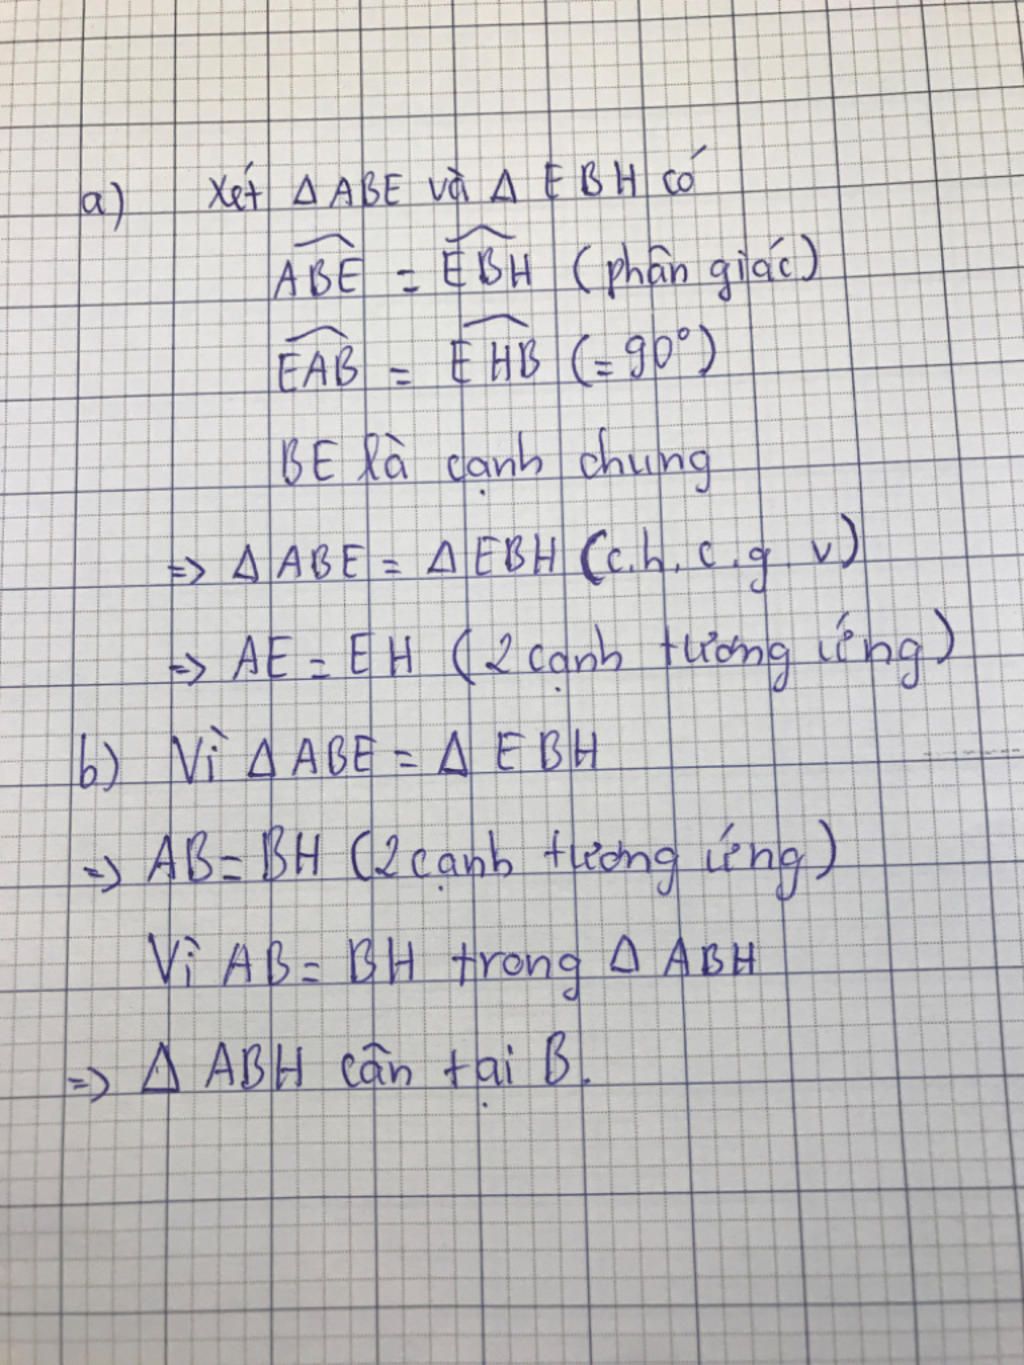 a) Xét Δ ABE và Δ EBH có
$\widehat{ABE}$ = $\widehat{EBH}$ (phân giác)
$\widehat{EAB}$ = $\widehat{EHB}$ (= 90°)
BE là cạnh chung
=> Δ ABE = Δ EBH (c.h. c.g v)
=> AE = EH (2 cạnh tương ứng)
b) Vì Δ ABE = Δ EBH
=> AB = BH (2 cạnh tương ứng)
Vì AB = BH trong Δ ABH
=> Δ ABH cân tại B.